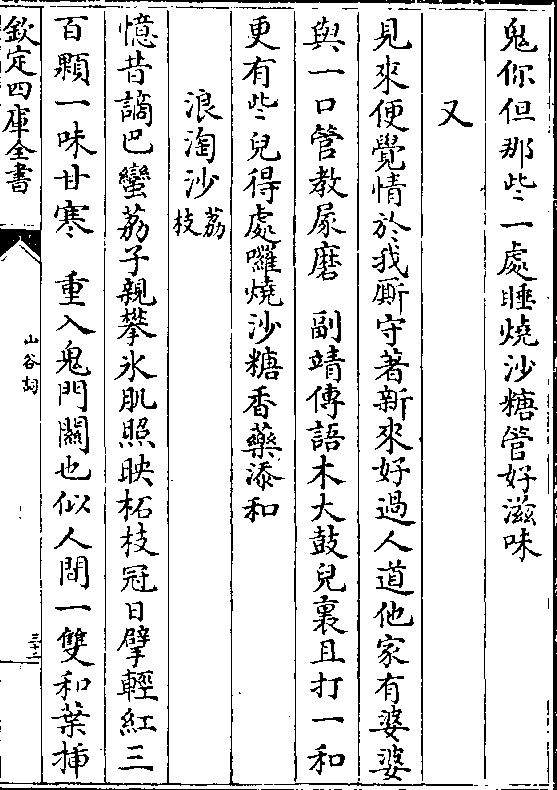 鬼你但那些一處睡燒沙糖管好滋味
又
見來便覺情於我厮守著新來好過人道他家有婆婆
與一口管教㞘磨　副靖傳語木大鼓兒裏且打一和
更有些兒得處囉燒沙糖香藥添和
浪淘沙荔枝
憶昔謫巴蠻荔子親攀氷肌照映柘枝冠日擘輕紅三
百顆一味甘寒　重入鬼門關也似人間一雙和葉揷
欽定四庫全書
山谷詞
三十二